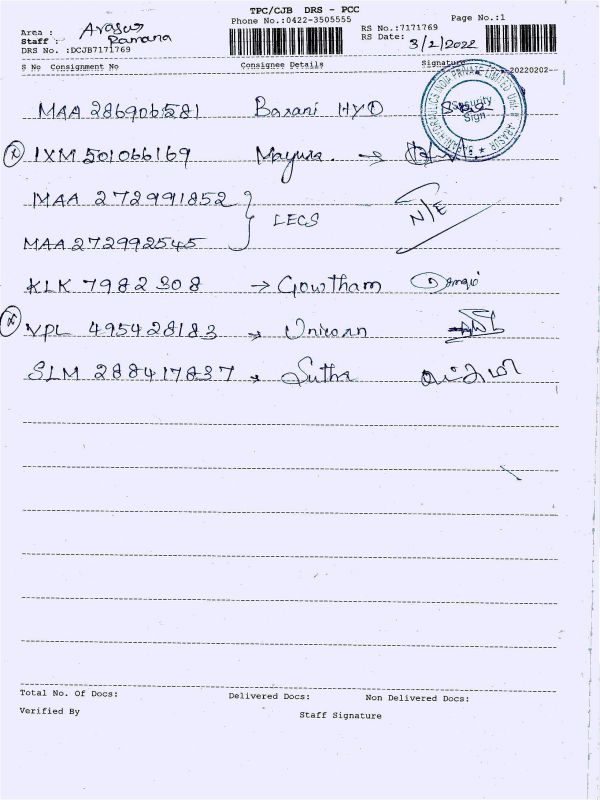 TPC/CJB DRS - PCC
Phone No.:0422-3505555
Page No.:1
Area : Arasur
Staff : Ramana
RS No.:7171769
RS Date: 3/2/2022
DRS No. :DCJB7171769
S No Consignment No Consignee Details Signature
20220202
MAA 286906581 Barani HYD
Security Sign
IXM 501066169 Mayura. →
MAA 272991852
LECS N/E
MAA 272992545
KLK 7982308 → Gowtham
VPL 495428183 → Unicorn
SLM 288417837 → Sutha
Total No. Of Docs: Delivered Docs: Non Delivered Docs:
Verified By Staff Signature